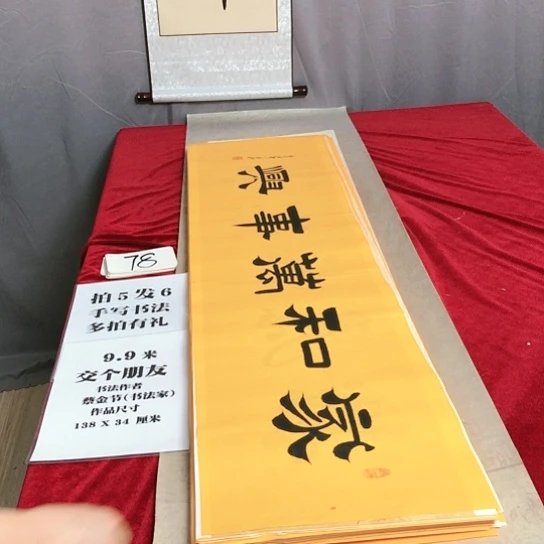 家和萬事興
78
拍5发6
手写书法
多拍有礼
9.9 米
交个朋友
书法作者
蔡金节(书法家)
作品尺寸
138 X 34 厘米